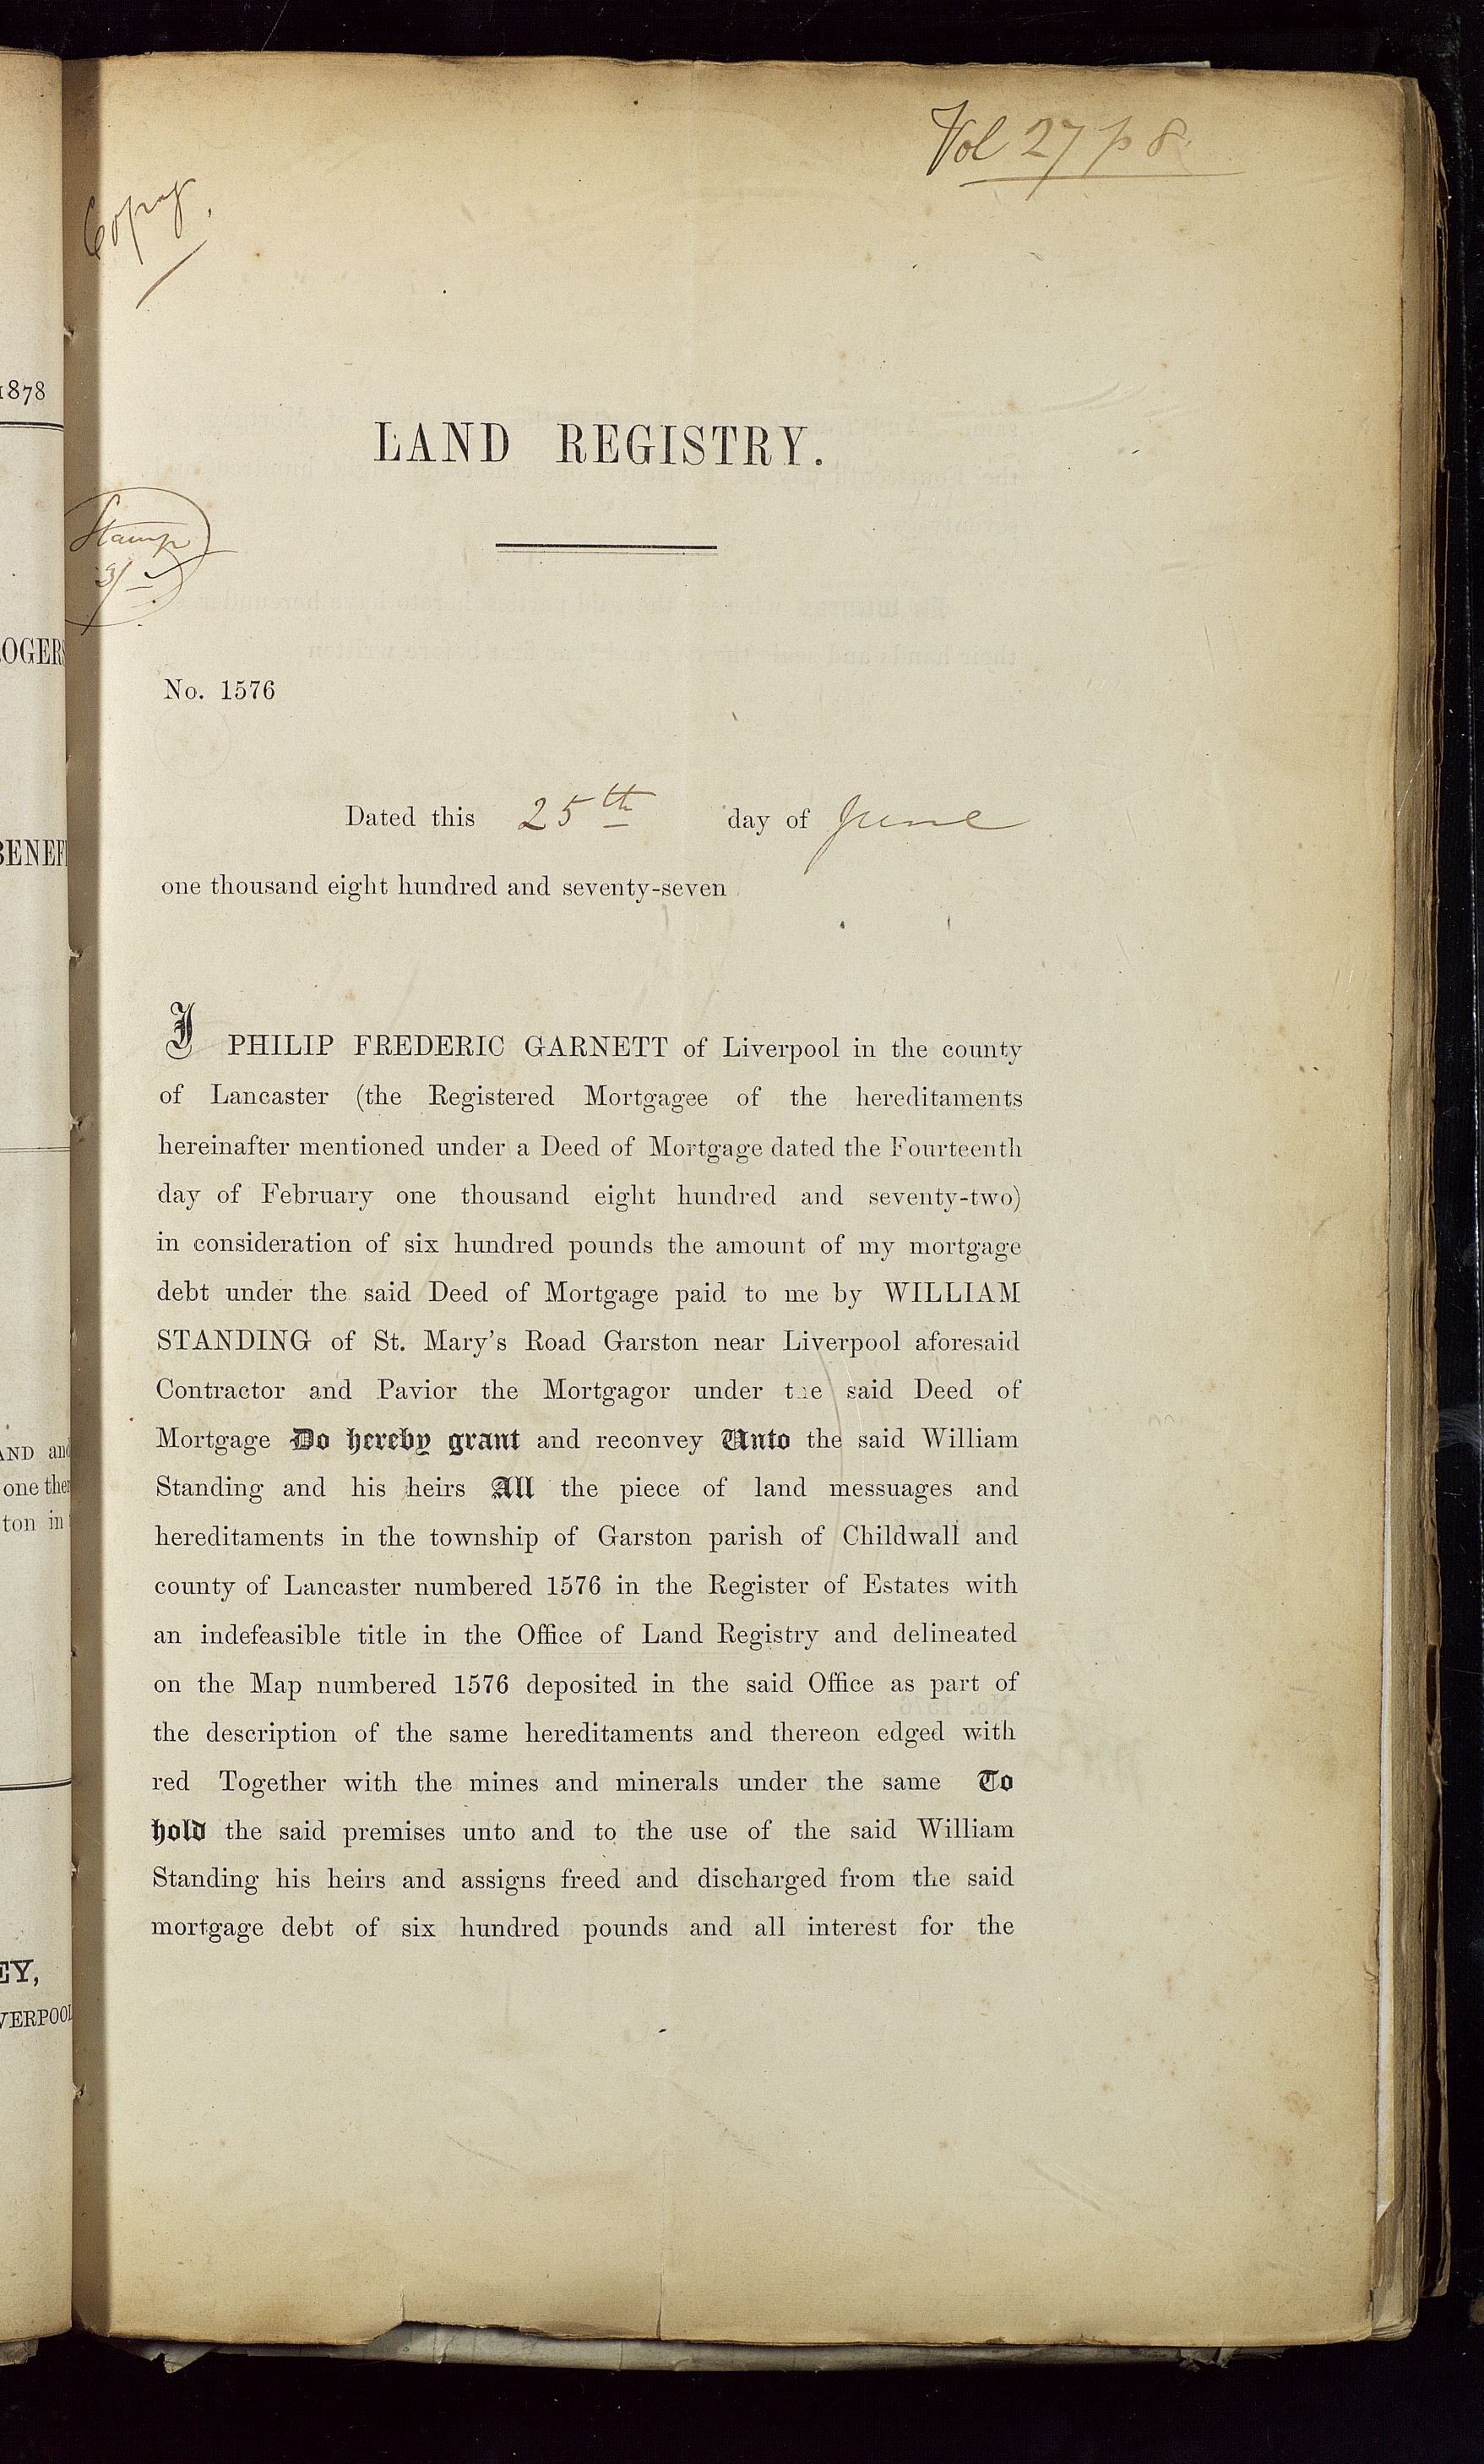 Vol 27 p 8
Copy.
1878
LAND REGISTRY.
Stamp
3/-
No. 1576
Dated this 25th day of June
one thousand eight hundred and seventy-seven
I PHILIP FREDERIC GARNETT of Liverpool in the county
of Lancaster (the Registered Mortgagee of the hereditaments
hereinafter mentioned under a Deed of Mortgage dated the Fourteenth
day of February one thousand eight hundred and seventy-two)
in consideration of six hundred pounds the amount of my mortgage
debt under the said Deed of Mortgage paid to me by WILLIAM
STANDING of St. Mary's Road Garston near Liverpool aforesaid
Contractor and Pavior the Mortgagor under the said Deed of
Mortgage Do hereby grant and reconvey Unto the said William
Standing and his heirs All the piece of land messuages and
hereditaments in the township of Garston parish of Childwall and
county of Lancaster numbered 1576 in the Register of Estates with
an indefeasible title in the Office of Land Registry and delineated
on the Map numbered 1576 deposited in the said Office as part of
the description of the same hereditaments and thereon edged with
red Together with the mines and minerals under the same To
hold the said premises unto and to the use of the said William
Standing his heirs and assigns freed and discharged from the said
mortgage debt of six hundred pounds and all interest for the